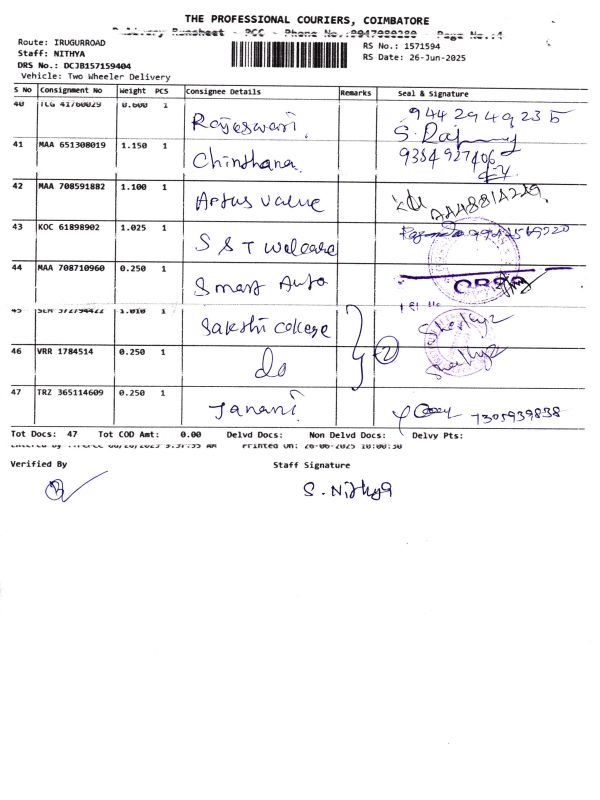 THE PROFESSIONAL COURIERS, COIMBATORE
Delivery Runsheet - PCC - Phone No.: Page No.:4
Route: IRUGURROAD
RS No.: 1571594
Staff: NITHYA
RS Date: 26-Jun-2025
DRS No.: DCJB157159404
Vehicle: Two Wheeler Delivery
S No Consignment No Weight PCS Consignee Details Remarks Seal & Signature
40 TCG 41760029 0.600 1 Rajeswari. 9442949235
41 MAA 651308019 1.150 1 Chinthana 9384927406
42 MAA 708591882 1.100 1 Artus value
43 KOC 61898902 1.025 1 S S T welcare
44 MAA 708710960 0.250 1 Smart Auto
45 1.010 1 Sakshi college
46 VRR 1784514 0.250 1 do 2
47 TRZ 365114609 0.250 1 Janani 7305939838
Tot Docs: 47 Tot COD Amt: 0.00 Delvd Docs: Non Delvd Docs: Delvy Pts:
Printed On: 26-06-2025 10:00:30
Verified By
Staff Signature
S. Nithya